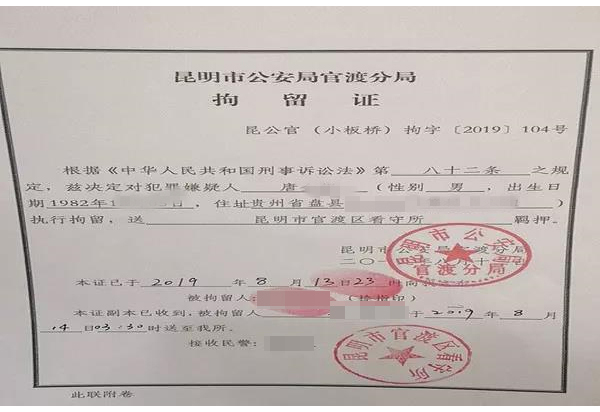 昆明市公安局官渡分局
拘 留 证
昆公官（小板桥）拘字［2019］104号
根据《中华人民共和国刑事诉讼法》第 八十二条 之规
定，兹决定对犯罪嫌疑人 唐 （性别 男 ，出生日
期1982年1 ，住址贵州省盘县 ）
执行拘留，送 昆明市官渡区看守所 羁押。
昆明市公安局官渡分局
二〇 八月十
昆明市公安局
官渡分局
本证已于 2019 年 8 月 13日23 时向
被拘留人： （捺指印）
本证副本已收到，被拘留人 于 2019 年 8 月
14日03:30时送至我所。
接收民警：
昆明市官渡区看守所
此联附卷